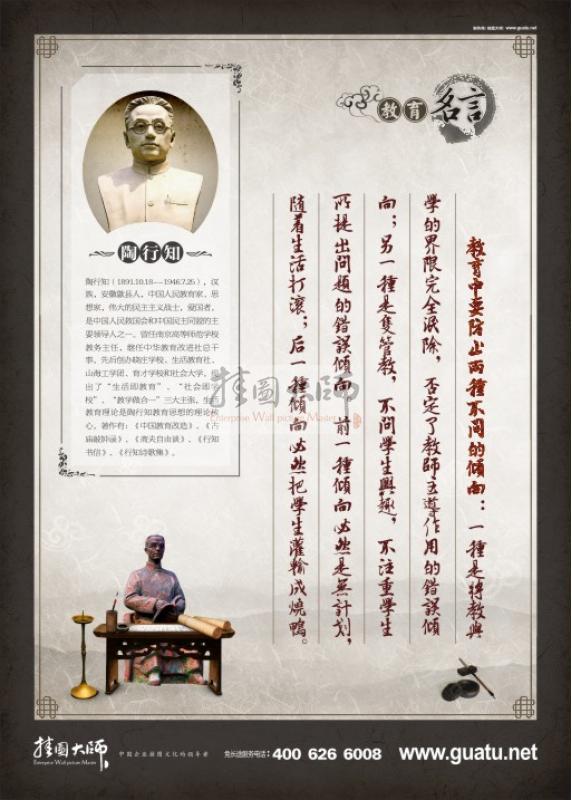 www.guatu.net
教育 名言
教育中要防止兩種不同的傾向：一種是將教與
學的界限完全泯除，否定了教師主導作用的錯誤傾
向；另一種是隻管教，不問學生興趣，不注重學生
所提出問題的錯誤傾向。前一種傾向必然是無計劃，
隨着生活打滾；后一種傾向必然把學生灌輸成燒鴨。
陶行知
陶行知（1891.10.18--1946.7.25），汉
族，安徽歙县人，中国人民教育家、思
想家，伟大的民主主义战士，爱国者，
是中国人民救国会和中国民主同盟的主
要领导人之一。曾任南京高等师范学校
教务主任，继任中华教育改进社总干
事。先后创办晓庄学校、生活教育社、
山海工学团、育才学校和社会大学。提
出了“生活即教育”、“社会即学
校”、“教学做合一”三大主张，生活
教育理论是陶行知教育思想的理论核
心。著作有：《中国教育改造》、《古
庙敲钟录》、《斋夫自由谈》、《行知
书信》、《行知诗歌集》。
挂图大师
Enterprise Wall picture Master
挂图大师
Enterprise Wall picture Master
免长途服务电话：400 626 6008
www.guatu.net